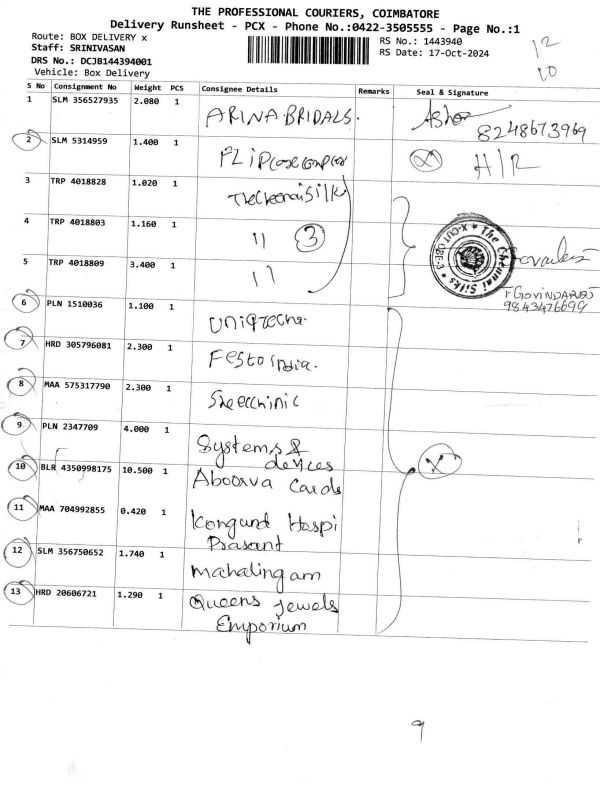 THE PROFESSIONAL COURIERS, COIMBATORE
Delivery Runsheet - PCX - Phone No.:0422-3505555 - Page No.:1
Route: BOX DELIVERY x
Staff: SRINIVASAN
DRS No.: DCJB144394001
Vehicle: Box Delivery
RS No.: 1443940
RS Date: 17-Oct-2024
12
10
S No Consignment No Weight PCS Consignee Details Remarks Seal & Signature
1 SLM 356527935 2.080 1 ARINA BRIDALS.
8248673969
2 SLM 5314959 1.400 1
X H/R
3 TRP 4018828 1.020 1 The Chennai Silk
4 TRP 4018803 1.160 1 11 3
The Chennai Silks
5 TRP 4018809 3.400 1 11
T GOVINDARAJ
9843476699
6 PLN 1510036 1.100 1 Uniqtechs.
7 HRD 305796081 2.300 1 Festo India.
8 MAA 575317790 2.300 1
9 PLN 2347709 4.000 1 Systems &
devices
X
10 BLR 4350998175 10.500 1 Aboorva Cards
11 MAA 704992855 0.420 1 Kongund Hospi
Prasant
12 SLM 356750652 1.740 1 Mahalingam
13 HRD 20606721 1.290 1 Queens Jewels
Emporium
9